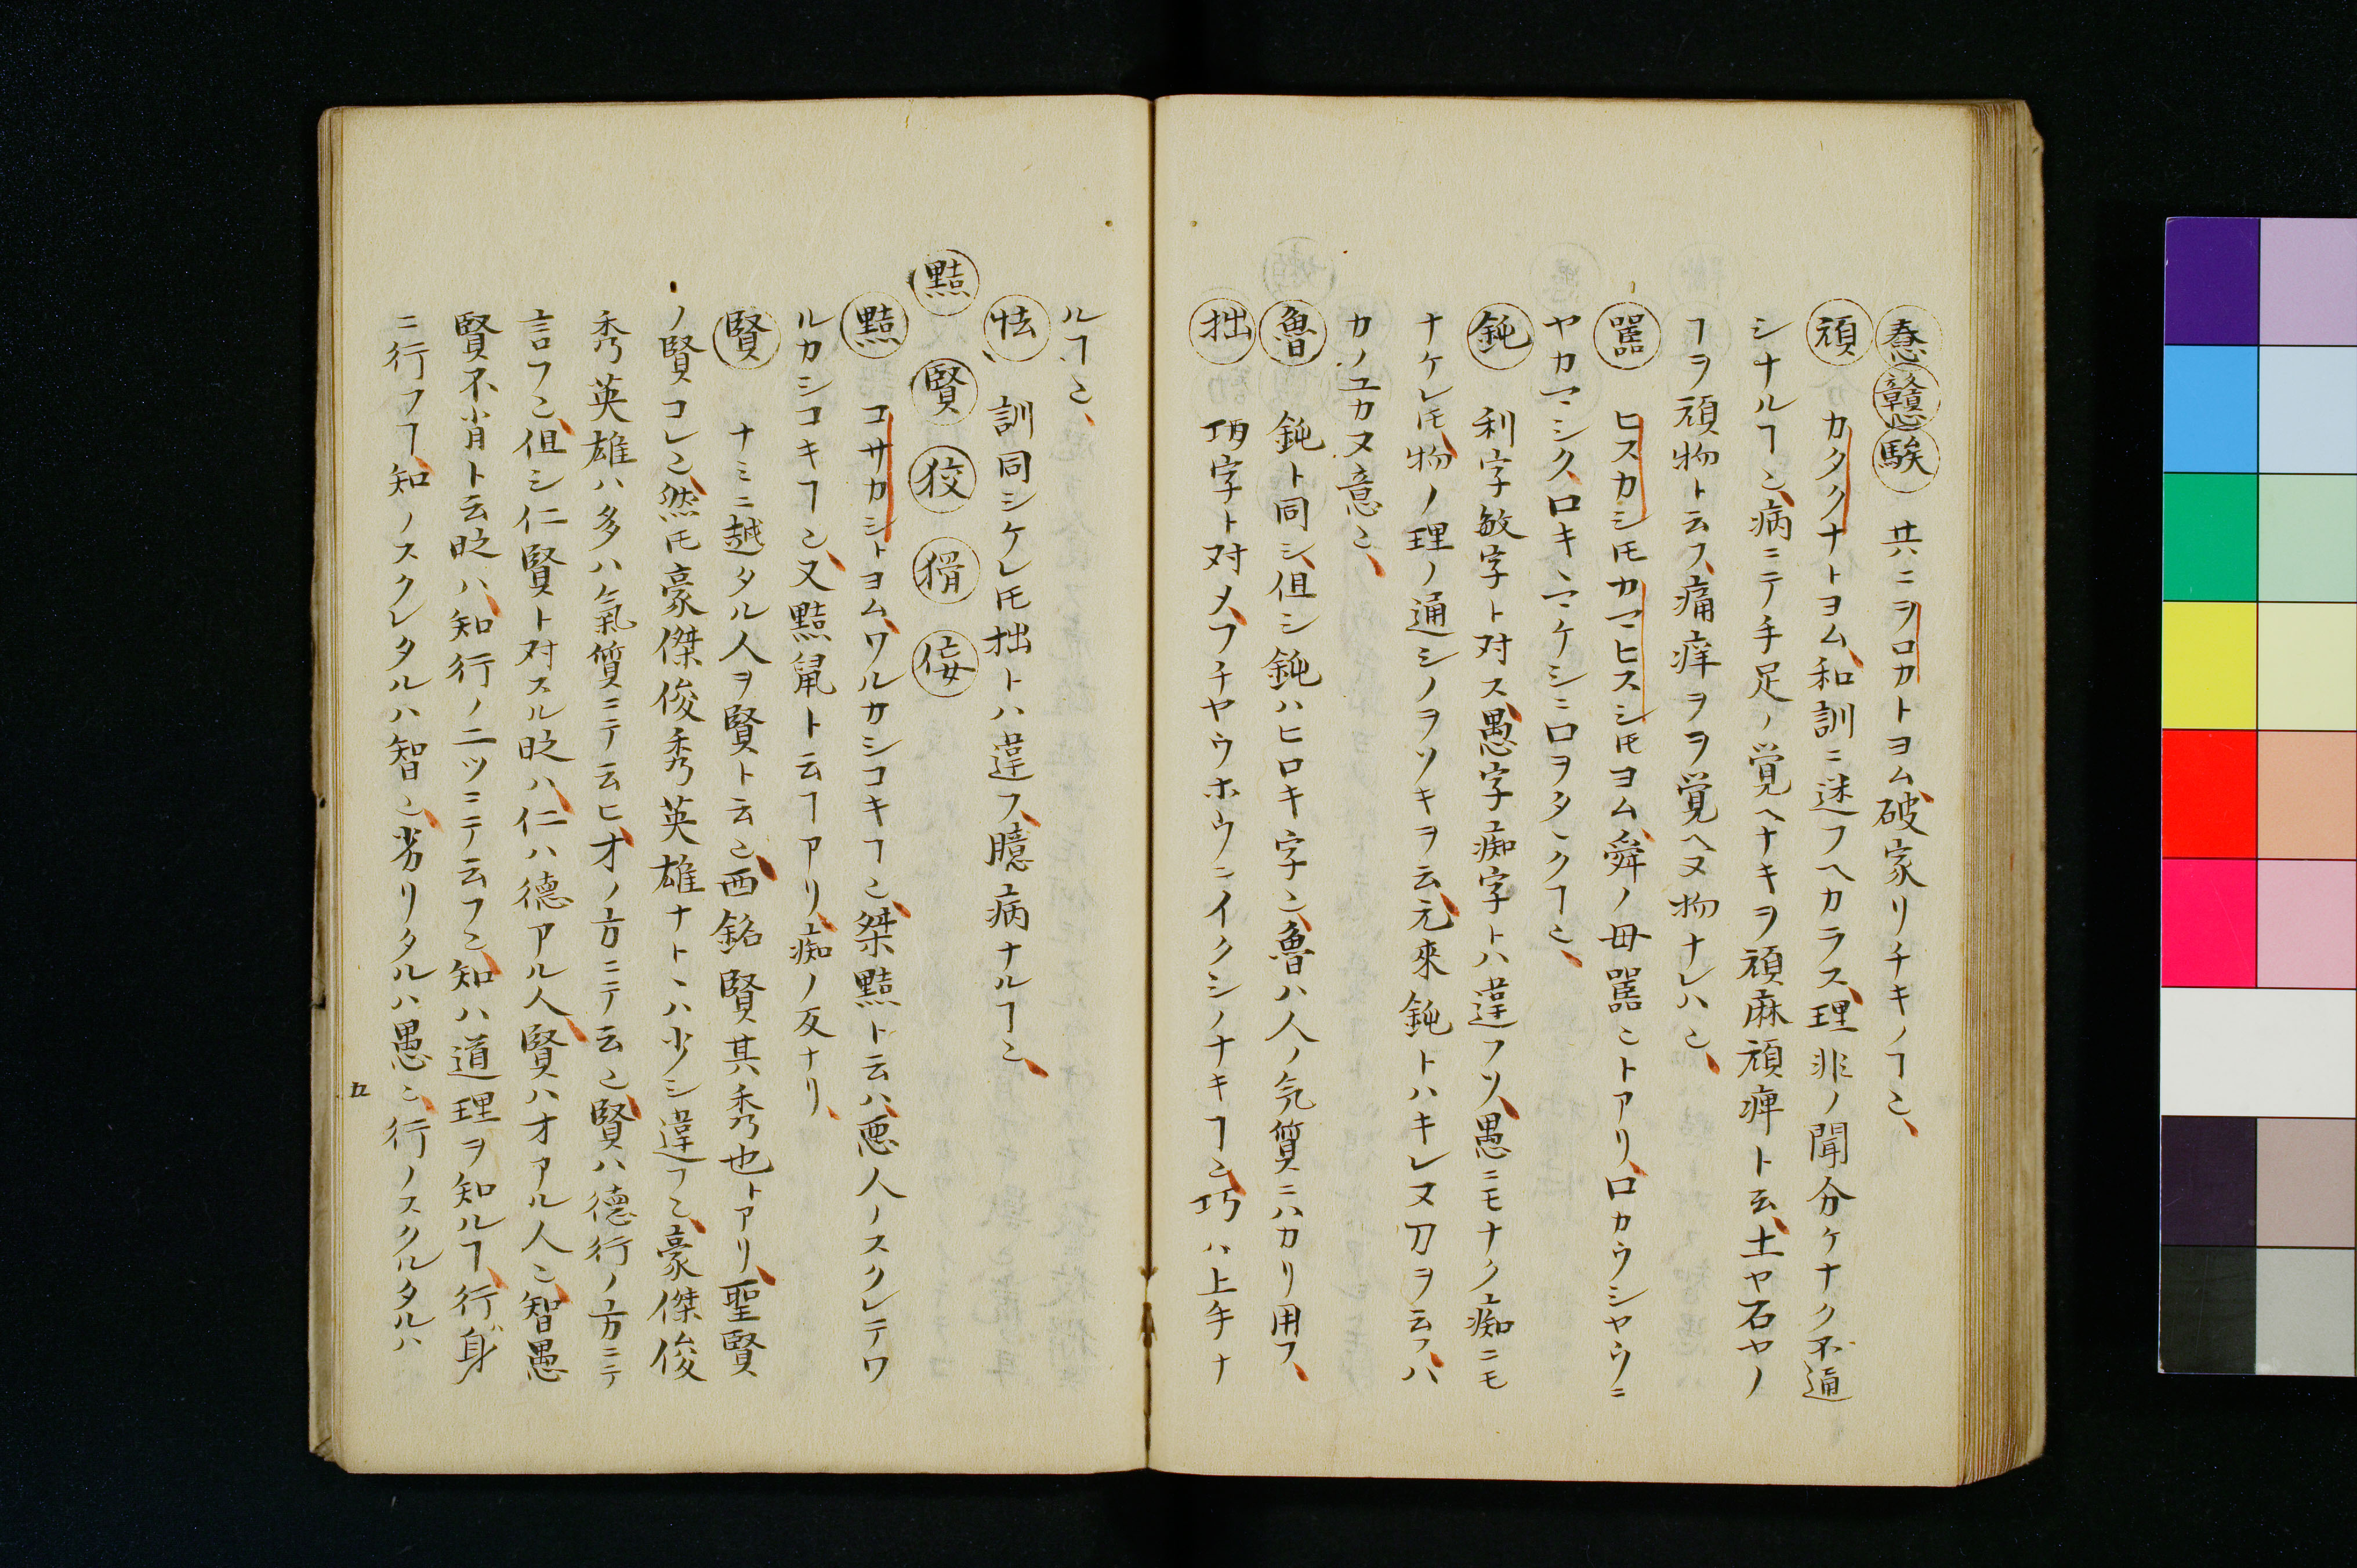 惷戇騃 共ニヲロカトヨム破家リチキノヿ也、
頑 カタクナトヨム、和訓ニ迷フヘカラス、理非ノ聞分ケナク不通
シナルヿ也、病ニテ手足ノ覚ヘナキヲ頑麻頑痺ト云、土ヤ石ヤノ
ヿヲ頑物ト云フ、痛痒ヲヲ覚ヘヌ物ナレハ也、
嚚 ヒスカシ𪜈カマヒスシ𪜈ヨム、舜ノ母嚚也トアリ、口カウシヤウニ
ヤカマシク、口キヽマケシニ口ヲタヽクヿ也、
鈍 利字敏字ト対ス、愚字痴字トハ違フソ、愚ニモナク痴ニモ
ナケレ𪜈、物ノ理ノ通シノヲソキヲ云、元來鈍トハキレヌ刀ヲ云フ、ハ
カノユカヌ意也、
魯 鈍ト同シ、但シ鈍ハヒロキ字也、魯ハ人ノ気質ニハカリ用フ、
拙 巧字ト対メ、フチヤウホウニイクシノナキヿ也、巧ハ上手ナ
ルヿ也、
怯 訓同シケレ𪜈拙トハ違フ、臆病ナルヿ也、
黠 賢 狡 猾 佞
黠 コサカシトヨム、ワルカシコキヿ也、桀黠ト云ハ、悪人ノスクレテワ
ルカシコキヿ也、又黠鼠ト云ヿアリ、痴ノ反ナリ、
賢 ナミニ越タル人ヲ賢ト云也、西銘賢其秀也トアリ、聖賢
ノ賢コレ也、然𪜈豪傑俊秀英雄ナトヽハ少シ違フ也、豪傑俊
秀英雄ハ多ハ氣質ニテ云ヒ、才ノ方ニテ云也、賢ハ德行ノ方ニテ
言フ也、但シ仁賢ト対スル時ハ、仁ハ德アル人、賢ハオアル人也、智愚
賢不肖ト云時ハ、知行ノ二ツニテ云フ也、知ハ道理ヲ知ルヿ、行ハ身
ニ行フヿ、知ノスクレタルハ智也、劣リタルハ愚也、行ノスクルタルハ
五